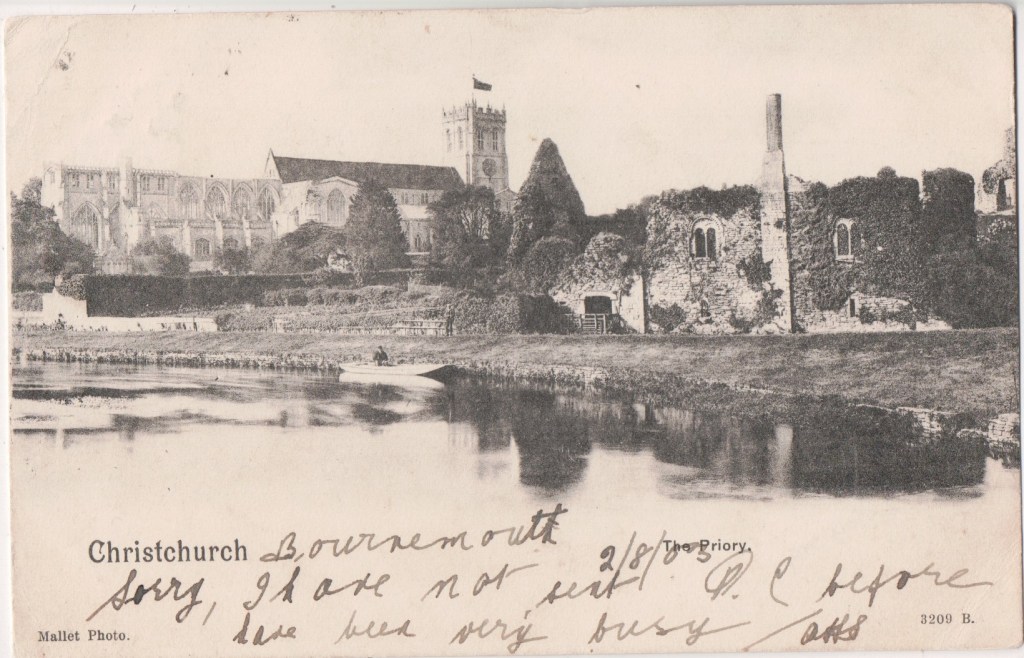 Christchurch Bournemouth
2/8/03 The Priory.
Sorry, I have not sent P. C before
have been very busy
Mallet Photo. 3209 B.